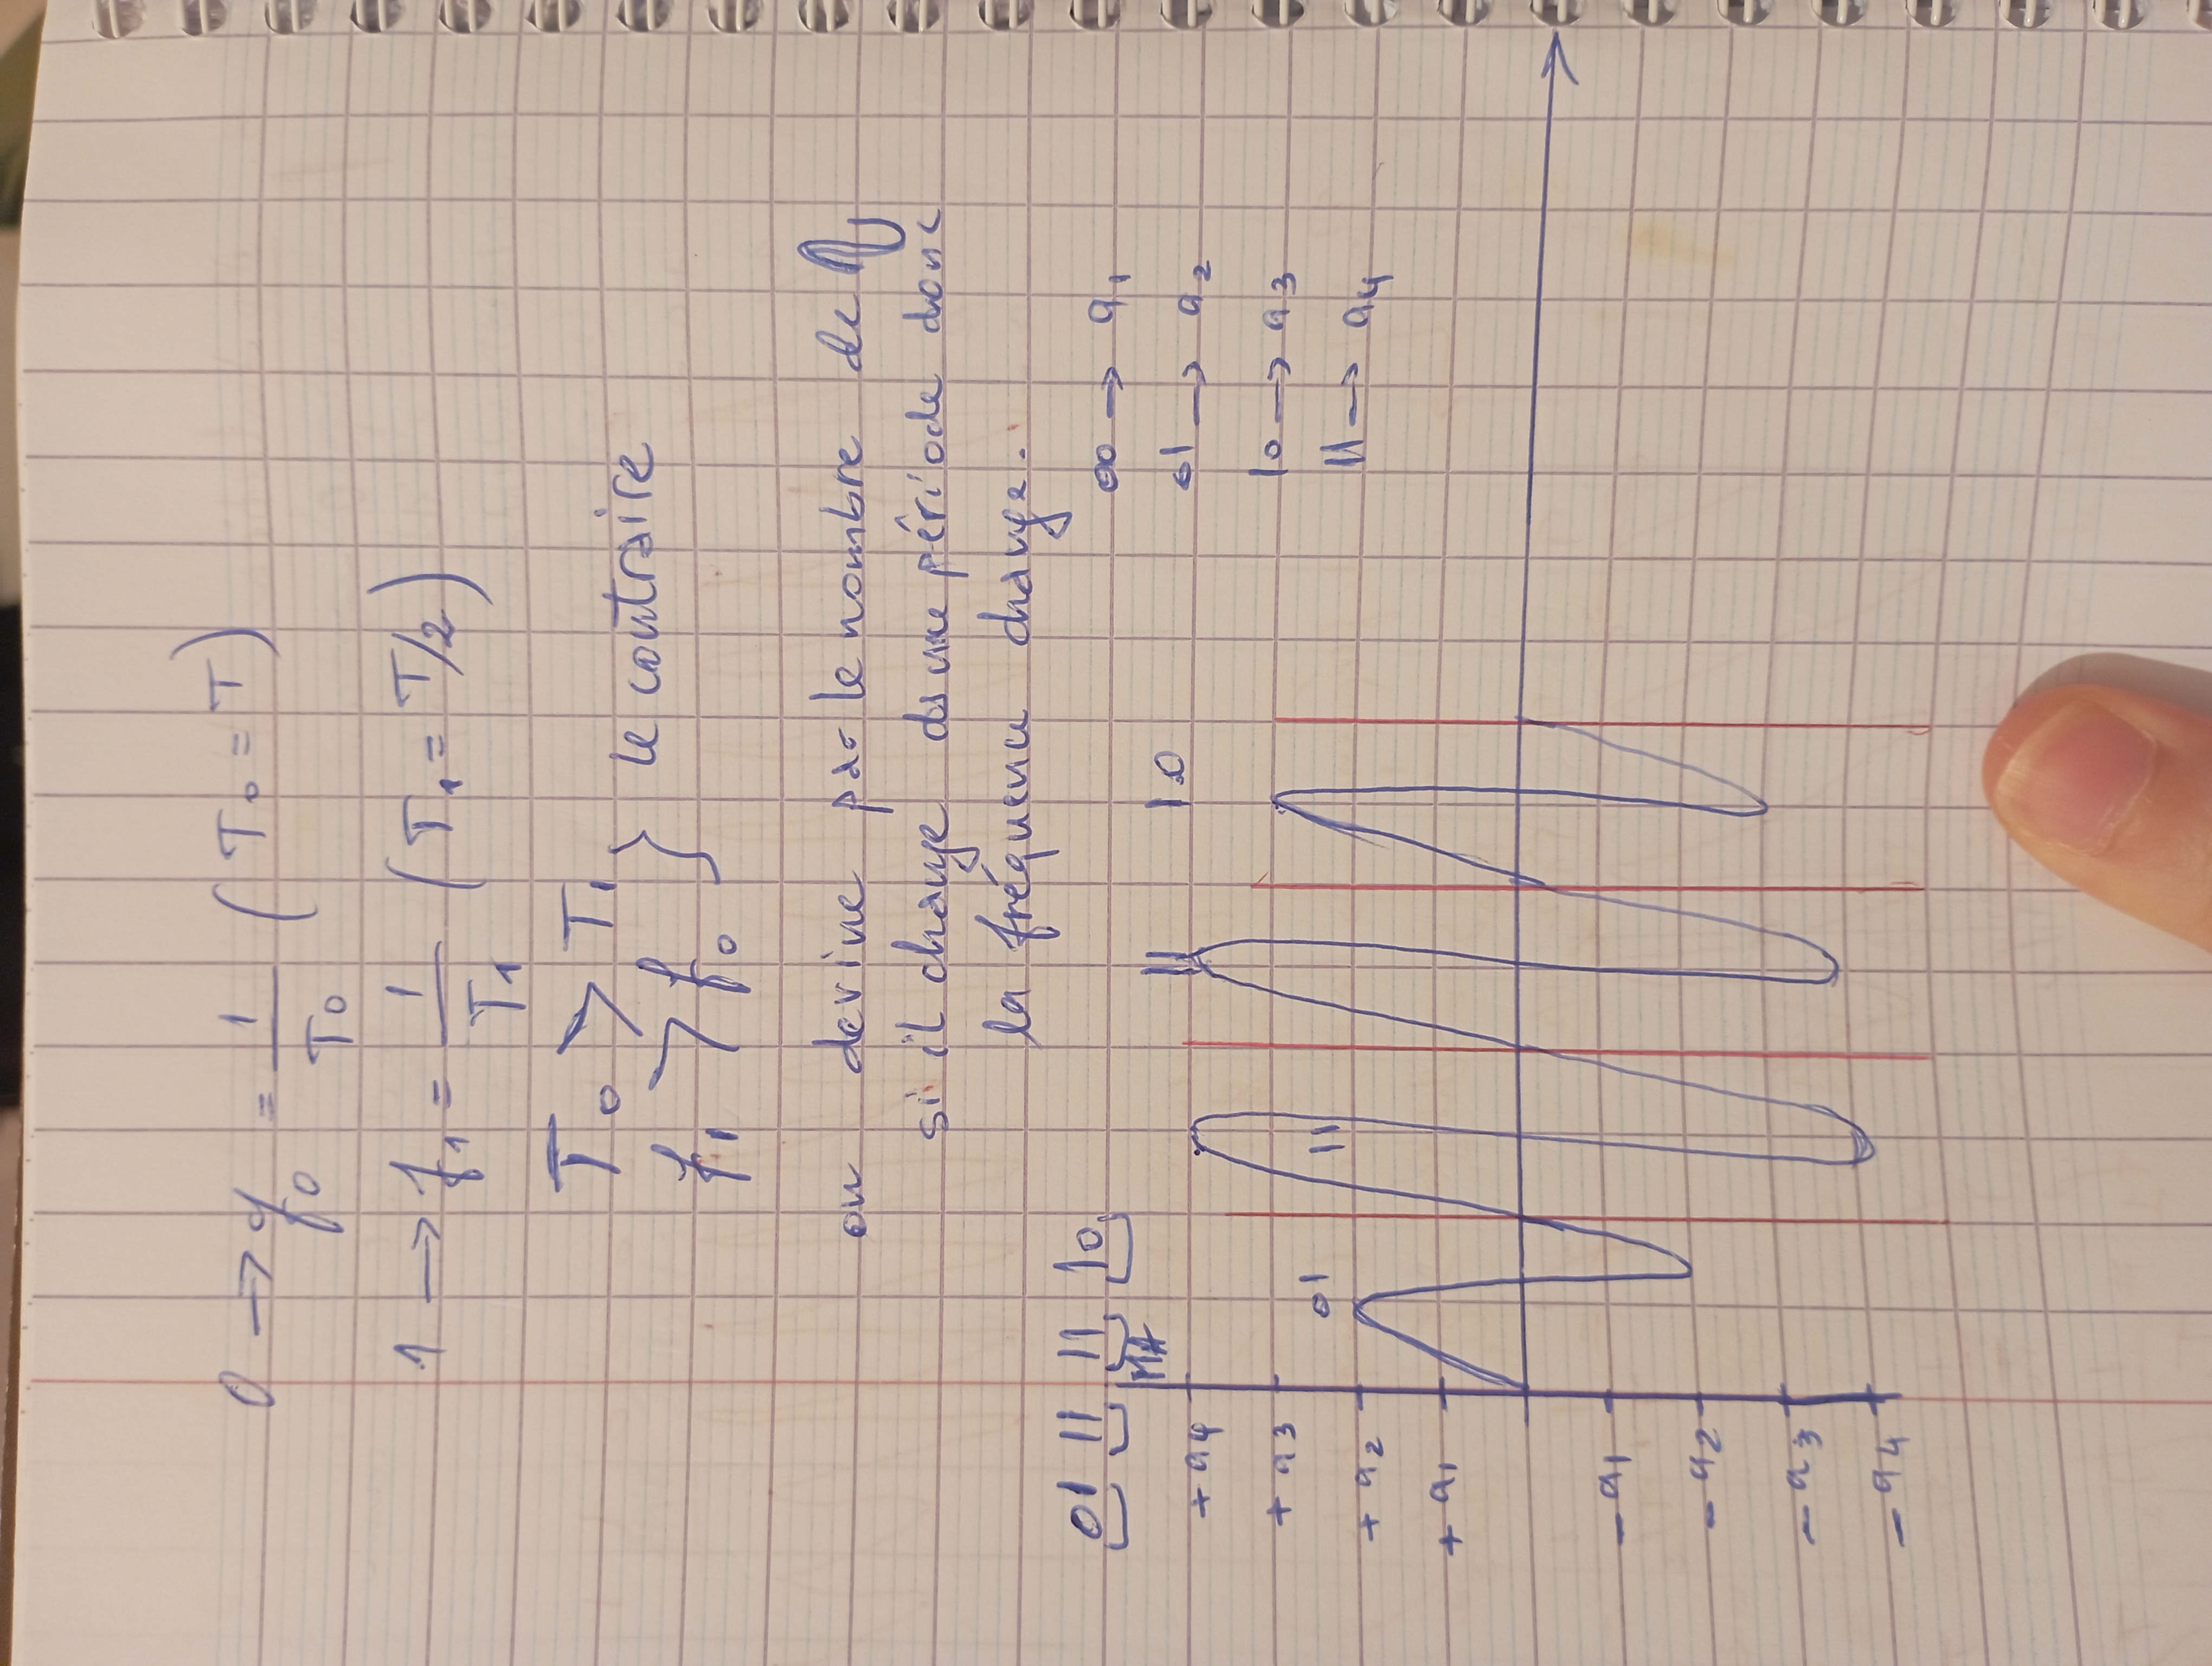 0 → f₀ = 1/T₀ ( T₀ = T )
1 → f₁ = 1/T₁ ( T₁ = T/2 )
T₀ > T₁
f₁ > f₀ } le contraire
on devine par le nombre de
si il change ds une période donc
la fréquence change.
01 11 11 10
MA
00 → a₁
01 → a₂
10 → a₃
11 → a₄
+ a₄
+ a₃
+ a₂
+ a₁
- a₁
- a₂
- a₃
- a₄
01
11
11
10